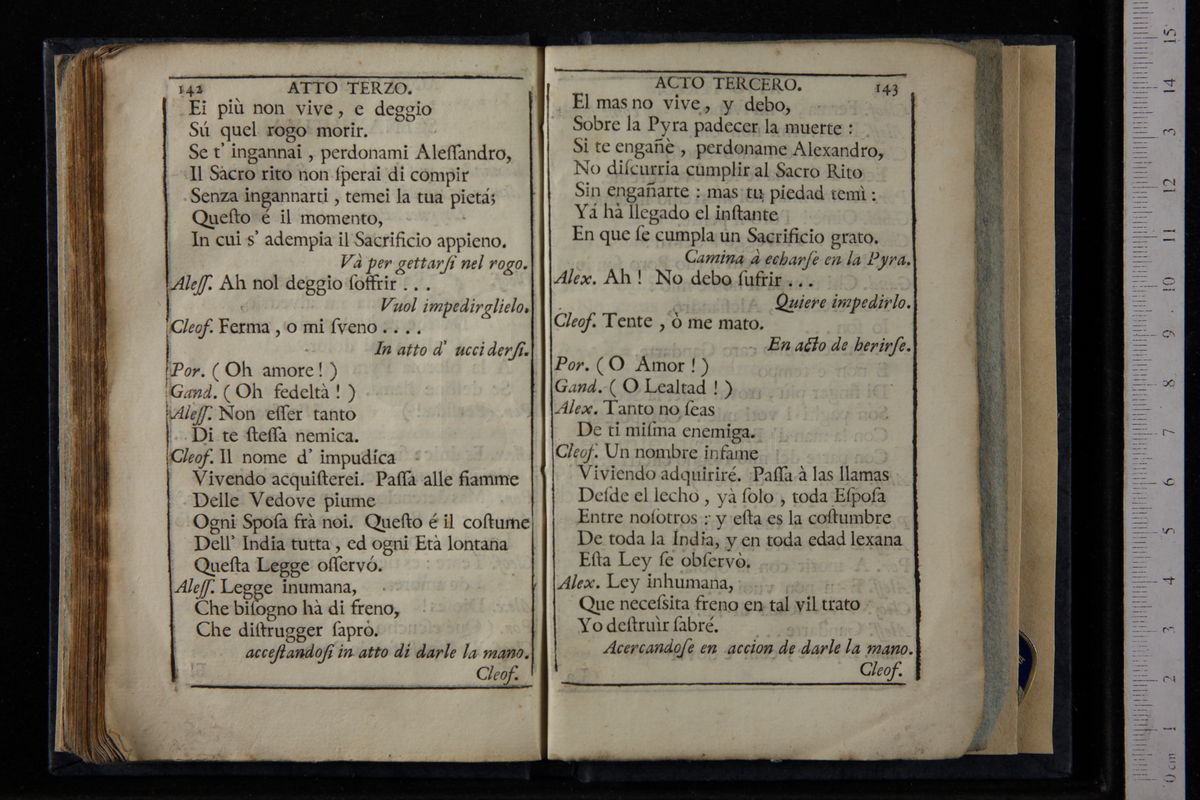 142 ATTO TERZO.
Ei più non vive, e deggio
Sú quel rogo morir.
Se t' ingannai, perdonami Aleſſandro,
Il Sacro rito non ſperai di compir
Senza ingannarti, temei la tua pietá;
Queſto é il momento,
In cui s' adempia il Sacrificio appieno.
Và per gettarſi nel rogo.
Aleſſ. Ah nol deggio ſoffrir . . .
Vuol impedirglielo.
Cleof. Ferma, o mi ſveno . . . .
In atto d' ucciderſi.
Por. ( Oh amore! )
Gand. ( Oh fedeltà! )
Aleſſ. Non eſſer tanto
Di te ſteſſa nemica.
Cleof. Il nome d' impudica
Vivendo acquiſterei. Paſſa alle fiamme
Delle Vedove piume
Ogni Spoſa frà noi. Queſto é il coſtume
Dell' India tutta, ed ogni Età lontana
Queſta Legge oſſervó.
Aleſſ. Legge inumana,
Che biſogno hà di freno,
Che diſtrugger ſaprò.
acceſtandoſi in atto di darle la mano.
Cleof.
ACTO TERCERO. 143
El mas no vive, y debo,
Sobre la Pyra padecer la muerte :
Si te engañè, perdoname Alexandro,
No diſcurria cumplir al Sacro Rito
Sin engañarte : mas tu piedad temì :
Yá hà llegado el inſtante
En que ſe cumpla un Sacrificio grato.
Camina à echarſe en la Pyra.
Alex. Ah! No debo ſufrir . . .
Quiere impedirlo.
Cleof. Tente, ò me mato.
En acto de herirſe.
Por. ( O Amor! )
Gand. ( O Lealtad! )
Alex. Tanto no ſeas
De ti miſma enemiga.
Cleof. Un nombre infame
Viviendo adquiriré. Paſſa à las llamas
Deſde el lecho, yà ſolo, toda Eſpoſa
Entre noſotros : y eſta es la coſtumbre
De toda la India, y en toda edad lexana
Eſta Ley ſe obſervò.
Alex. Ley inhumana,
Que neceſsita freno en tal vil trato
Yo deſtruir ſabré.
Acercandoſe en accion de darle la mano.
Cleof.
0 cm 1 2 3 4 5 6 7 8 9 10 11 12 13 14 15